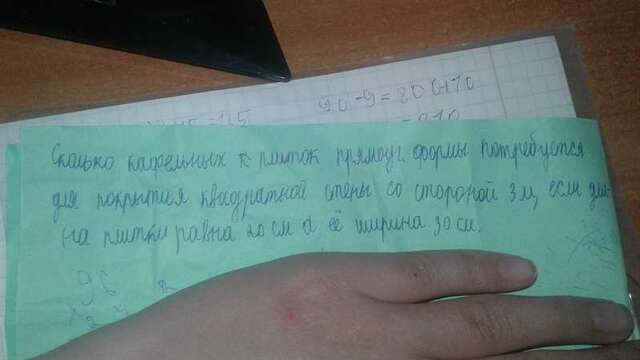 90·9=800+10
=810
Сколько кафельных плиток прямоуг. формы потребуется
для покрытия квадратной стены со стороной 3м, если дли-
на плитки равна 20см а её ширина 30см.
96